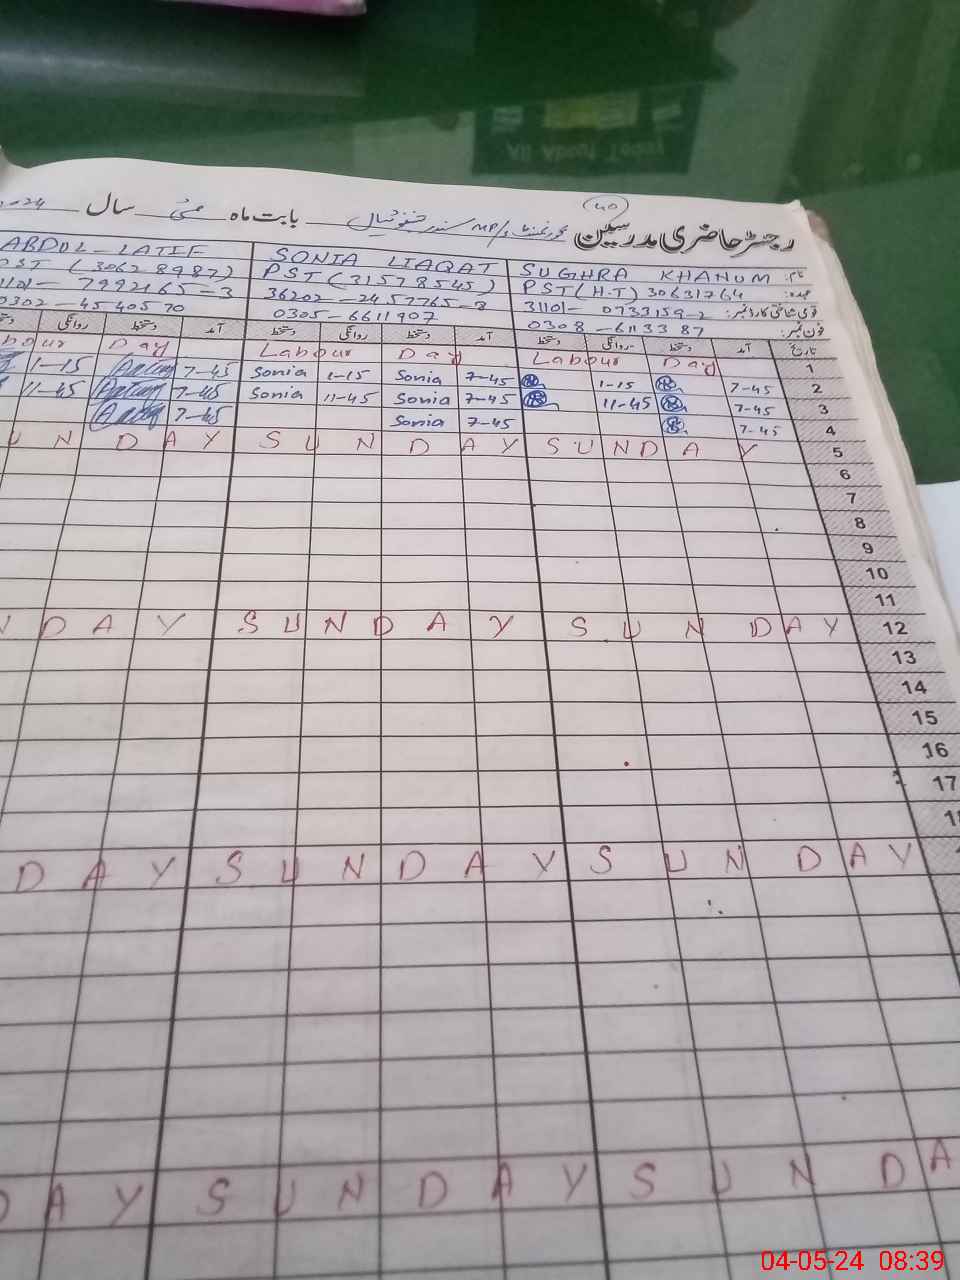 All About Today
40
رجسٹر حاضری مدرسین بابت ماہ مئی سال
نام: SUGHRA KHANUM SONIA LIAQAT ABDUL LATIF
عہدہ: PST (H.T) 30631764 PST (31578545) PST (30628987)
قومی شناختی کارڈ نمبر: 31101- 0733159-2 36202-2457765-3 31101- 7992165-3
فون نمبر: 0308-6113387 0305-6611907 0302-4540570
تاریخ آمد دستخط روانگی دستخط آمد دستخط روانگی دستخط آمد دستخط روانگی دستخط
1 Labour Day Labour Day Labour Day
2 7-45 1-15 7-45 Sonia 1-15 Sonia 7-45 1-15
3 7-45 11-45 7-45 Sonia 11-45 Sonia 7-45 11-45
4 7-45 7-45 Sonia 7-45
5 SUNDAY SUNDAY SUNDAY
6
7
8
9
10
11
12 SUNDAY SUNDAY NDAY
13
14
15
16
17
18
SUNDAY SUNDAY DAY
SUNDA SUNDAY DAY
04-05-24 08:39